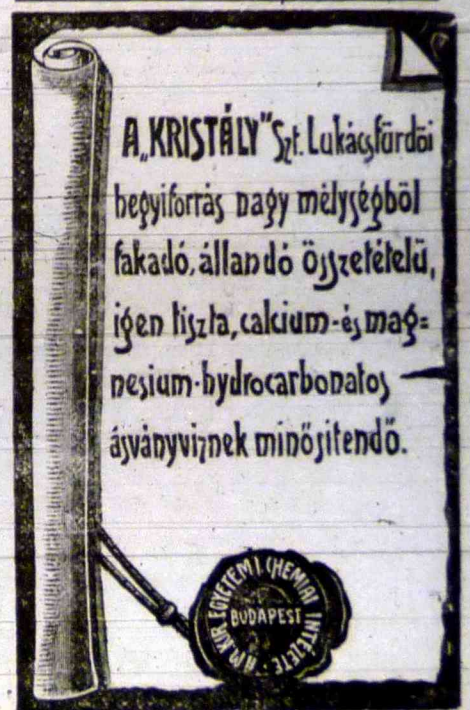 A „KRISTÁLY" Szt. Lukácsfürdöi
hegyiforrás nagy mélységböl
fakadó, állandó összetételü,
igen tiszta, calcium-és mag=
nesium-hydrocarbonatos
ásványviznek minösitendö.
A M. KIR. EGYETEMI CHEMIAI INTÉZETE
BUDAPEST